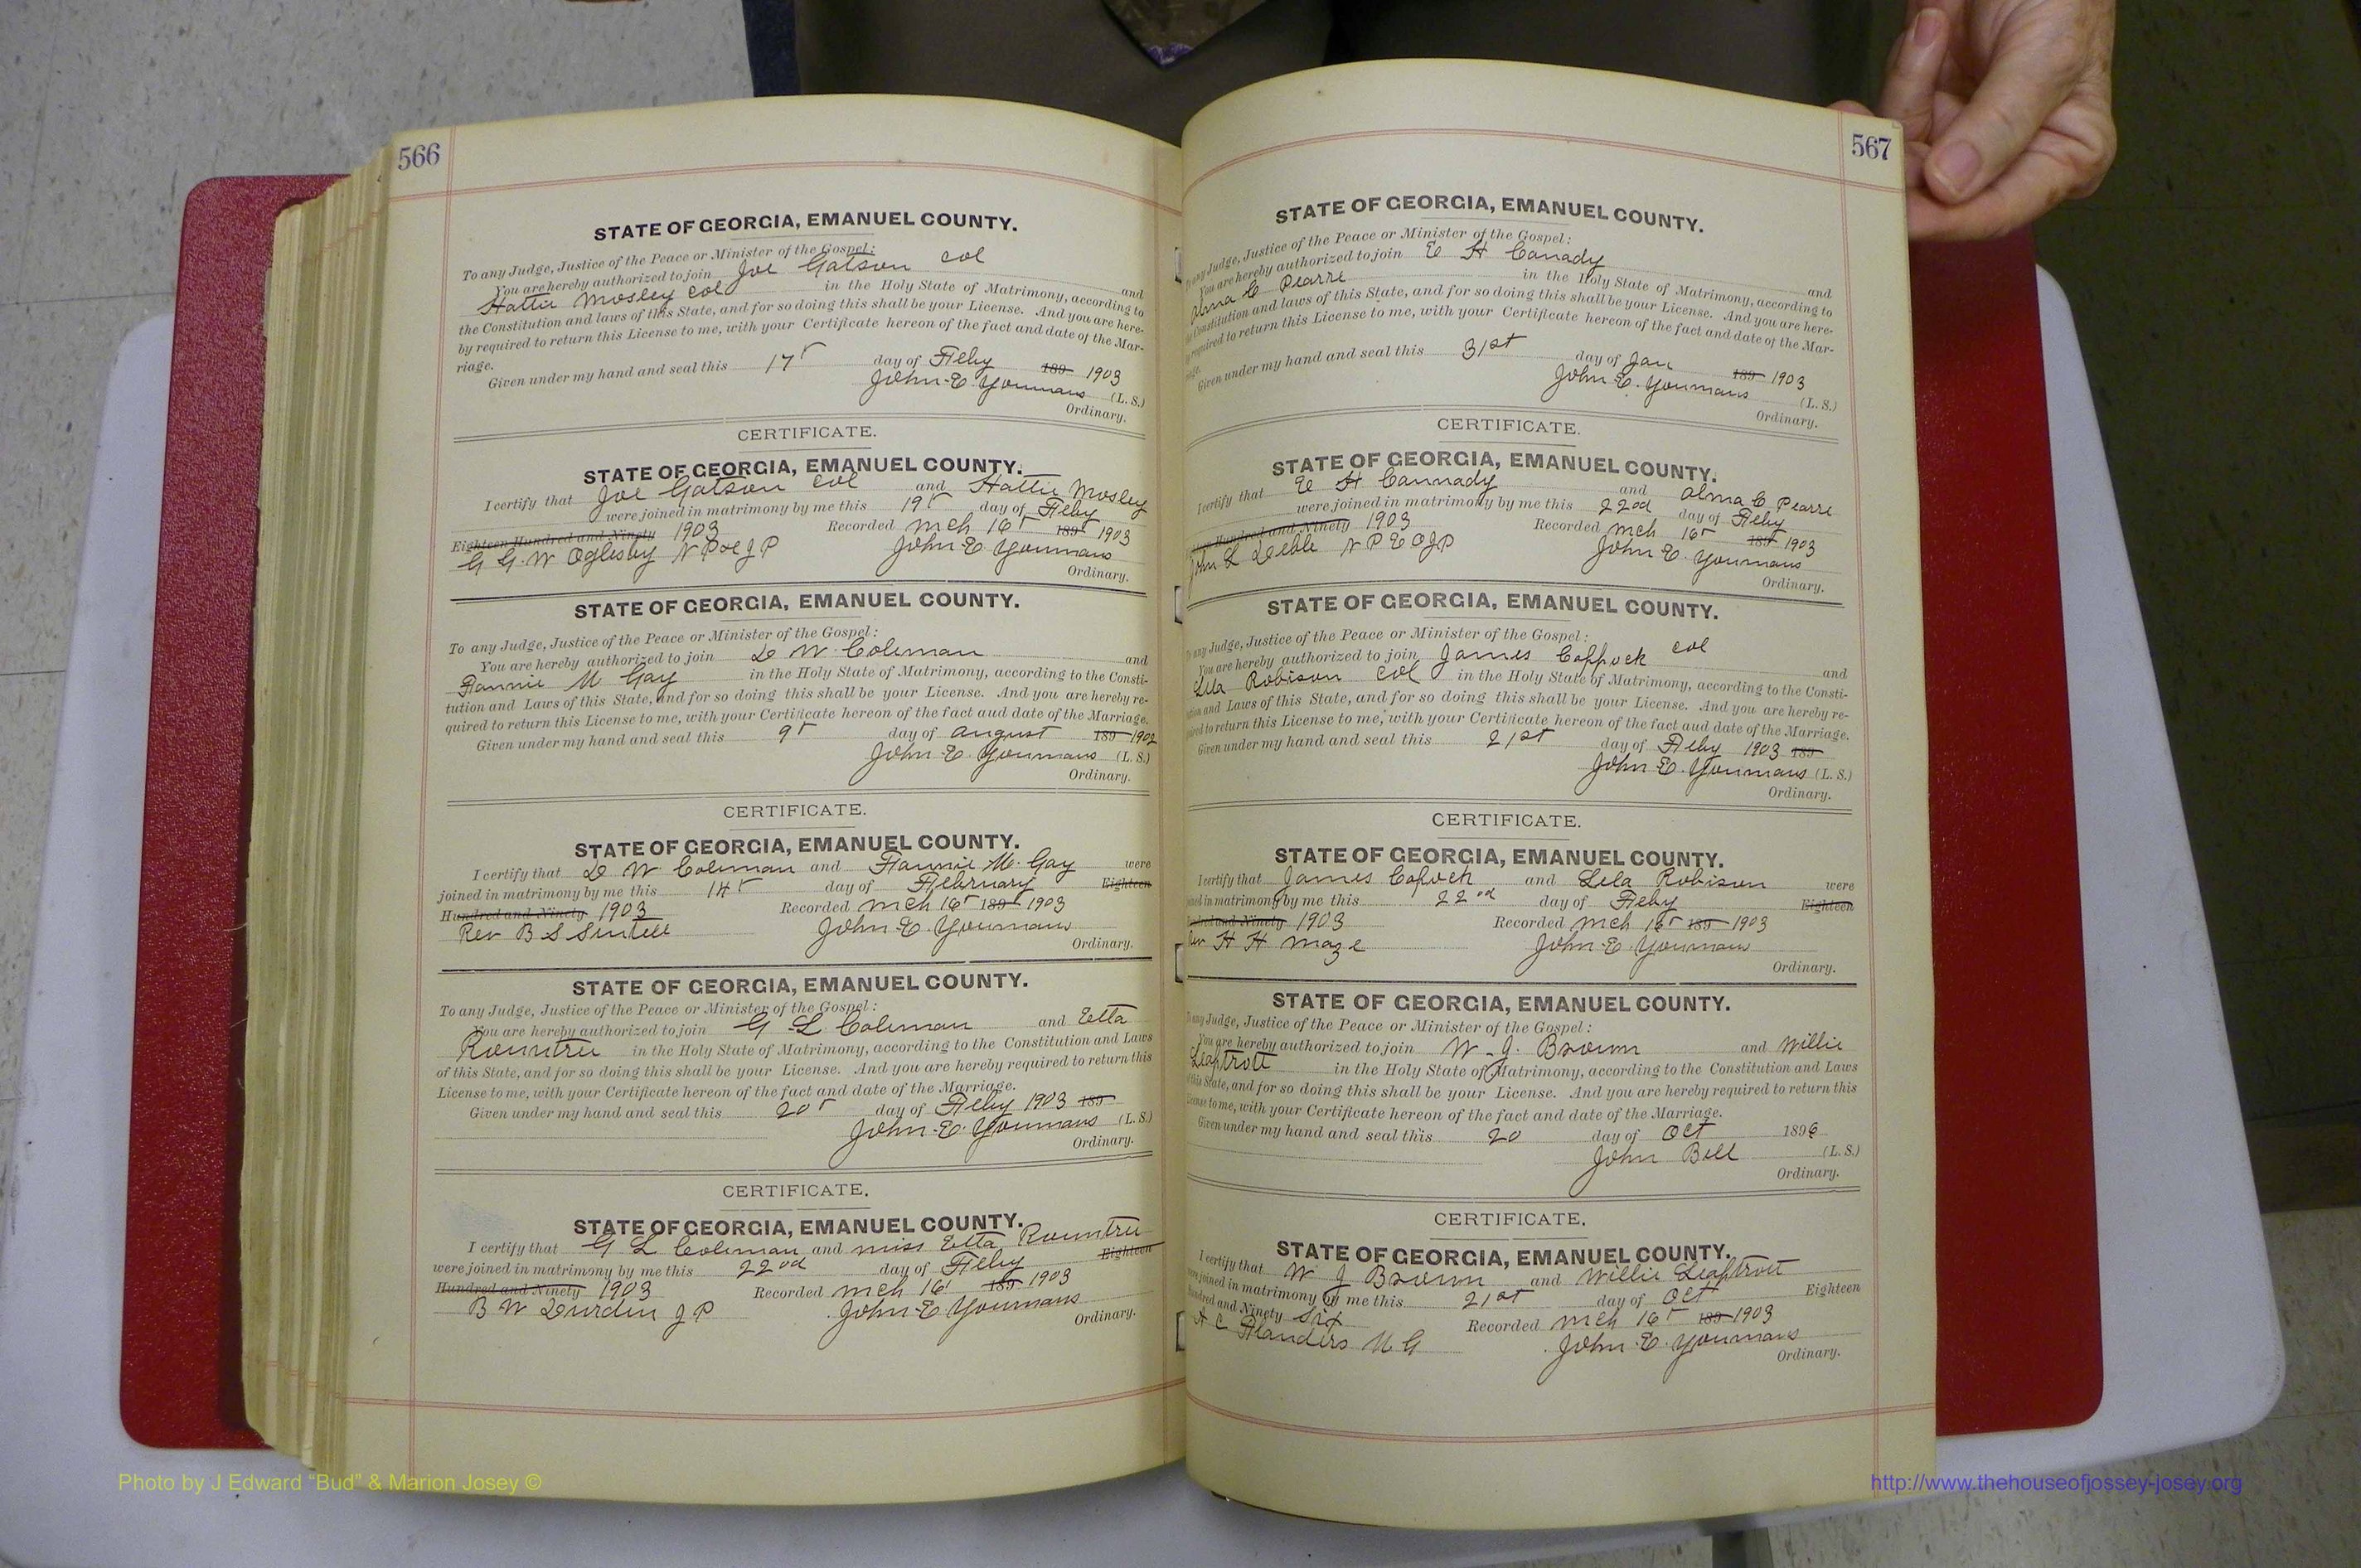 566
STATE OF GEORGIA, EMANUEL COUNTY.
To any Judge, Justice of the Peace or Minister of the Gospel:
You are hereby authorized to join Joe Gatson col and
Hattie Mosley col in the Holy State of Matrimony, according to
the Constitution and laws of this State, and for so doing this shall be your License. And you are here-
by required to return this License to me, with your Certificate hereon of the fact and date of the Mar-
riage.
Given under my hand and seal this 17t day of Feby 189 1903
John E. Youmans (L. S.)
Ordinary.
CERTIFICATE.
STATE OF GEORGIA, EMANUEL COUNTY.
I certify that Joe Gatson col and Hattie Mosley
were joined in matrimony by me this 19t day of Feby
Eighteen Hundred and Ninety 1903 Recorded Mch 16t 189 1903
G. W Oglesby N P & J P John E Youmans
Ordinary.
STATE OF GEORGIA, EMANUEL COUNTY.
To any Judge, Justice of the Peace or Minister of the Gospel:
You are hereby authorized to join D W Coleman and
Fannie M Gay in the Holy State of Matrimony, according to the Consti-
tution and Laws of this State, and for so doing this shall be your License. And you are hereby re-
quired to return this License to me, with your Certificate hereon of the fact aud date of the Marriage.
Given under my hand and seal this 9t day of August 189 1902
John E. Youmans (L. S.)
Ordinary.
CERTIFICATE.
STATE OF GEORGIA, EMANUEL COUNTY.
I certify that D W Coleman and Fannie M. Gay were
joined in matrimony by me this 14t day of February Eighteen
Hundred and Ninety 1903 Recorded Mch 16t 189 1903
Rev B S John E. Youmans
Ordinary.
STATE OF GEORGIA, EMANUEL COUNTY.
To any Judge, Justice of the Peace or Minister of the Gospel:
You are hereby authorized to join G L Coleman and Etta
Rountree in the Holy State of Matrimony, according to the Constitution and Laws
of this State, and for so doing this shall be your License. And you are hereby required to return this
License to me, with your Certificate hereon of the fact and date of the Marriage.
Given under my hand and seal this 20t day of Feby 1903 189
John E. Youmans (L. S.)
Ordinary.
CERTIFICATE.
STATE OF GEORGIA, EMANUEL COUNTY.
I certify that G L Coleman and miss Etta Rountree
were joined in matrimony by me this 22nd day of Feby Eighteen
Hundred and Ninety 1903 Recorded Mch 16t 189 1903
B W Durden J P John E Youmans
Ordinary.
567
STATE OF GEORGIA, EMANUEL COUNTY.
To any Judge, Justice of the Peace or Minister of the Gospel:
You are hereby authorized to join E H Canady and
Alma C Pearre in the Holy State of Matrimony, according to
the Constitution and laws of this State, and for so doing this shall be your License. And you are here-
by required to return this License to me, with your Certificate hereon of the fact and date of the Mar-
riage.
Given under my hand and seal this 31st day of Jan 189 1903
John E. Youmans (L. S.)
Ordinary.
CERTIFICATE.
STATE OF GEORGIA, EMANUEL COUNTY.
I certify that E H Cannady and Alma C Pearre
were joined in matrimony by me this 22nd day of Feby
Hundred and Ninety 1903 Recorded Mch 16t 189 1903
John L N P E O J P John E. Youmans
Ordinary.
STATE OF GEORGIA, EMANUEL COUNTY.
To any Judge, Justice of the Peace or Minister of the Gospel:
You are hereby authorized to join James Coppock col and
Lela Robison col in the Holy State of Matrimony, according to the Consti-
tution and Laws of this State, and for so doing this shall be your License. And you are hereby re-
quired to return this License to me, with your Certificate hereon of the fact aud date of the Marriage.
Given under my hand and seal this 21st day of Feby 1903 189
John E. Youmans (L. S.)
Ordinary.
CERTIFICATE.
STATE OF GEORGIA, EMANUEL COUNTY.
I certify that James Copock and Lela Robison were
joined in matrimony by me this 22nd day of Feby Eighteen
Hundred and Ninety 1903 Recorded Mch 16t 189 1903
Rev H H Maze John E. Youmans
Ordinary.
STATE OF GEORGIA, EMANUEL COUNTY.
To any Judge, Justice of the Peace or Minister of the Gospel:
You are hereby authorized to join W. J. Brown and Willie
Leaptrott in the Holy State of Matrimony, according to the Constitution and Laws
of this State, and for so doing this shall be your License. And you are hereby required to return this
License to me, with your Certificate hereon of the fact and date of the Marriage.
Given under my hand and seal this 20 day of Oct 1896
John Bell (L. S.)
Ordinary.
CERTIFICATE.
STATE OF GEORGIA, EMANUEL COUNTY.
I certify that W J Brown and Willie Leaptrott
were joined in matrimony by me this 21st day of Oct Eighteen
Hundred and Ninety Six Recorded Mch 16t 189 1903
A C Flanders M G John E. Youmans
Ordinary.
Photo by J Edward “Bud” & Marion Josey ©
http://www.thehouseofjossey-josey.org